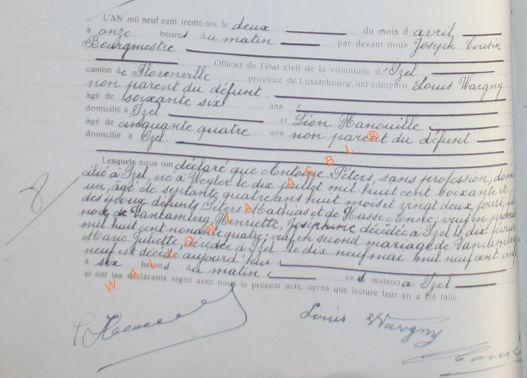 L'AN mil neuf cent trente-six, le deux du mois d'avril
à onze heures du matin par devant nous Joseph
Bourgmestre
Officier de l'état civil de la commune d'Izel
canton de Florenville province de Luxembourg, ont comparu Louis Wargny
non parent du défunt
âgé de soixante six ans
domicilié à Izel et Léon Hanouille
âgé de cinquante quatre ans non parent du défunt
domicilié à Izel
Lesquels nous ont déclaré que Antoine Peters, sans profession, domi
cilié à Izel, né à Weyler le dix juillet mil huit cent soixante et
un, âgé de septante quatre ans huit mois et vingt deux jours, fils
des époux défunts Peters Mathias et de Hasse Anne, veuf en premières
noces de Vantamberg Henriette, Joséphine décédée à Izel le dix février
mil huit cent nonante quatre; veuf en second mariage de
Marie Juliette, décédée à Izel le dix neuf mai mil neuf cent
neuf est décédé aujourd'hui
à six heures du matin en sa maison à Izel
et ont les déclarants signé avec nous le présent acte, après que lecture leur en a été faite.
Louis Wargny